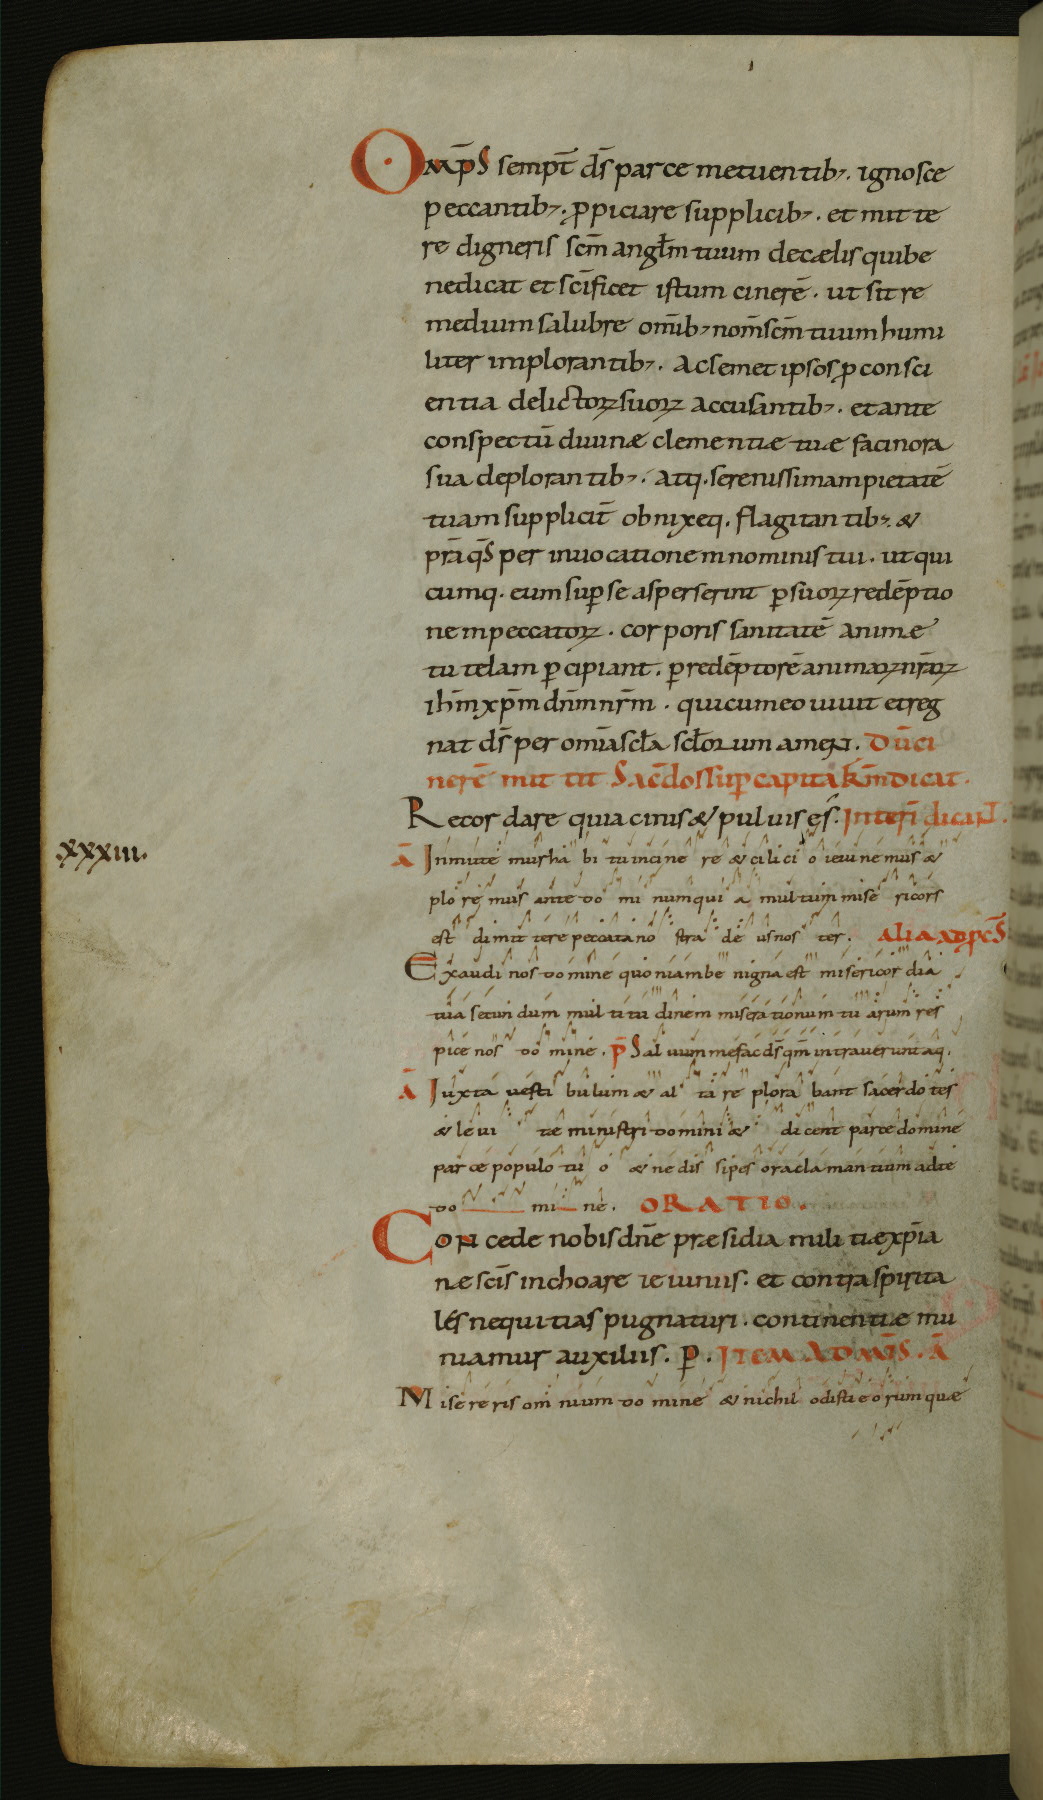 Omp̄s sempt̄ ds̄ parce metuentib;. ignosce
peccantib;. ꝓpiciare supplicib;. et mitte
re digneris scm̄ angłm tuum decælis quibe
nedicat et scīficet istum cinerē. ut sit re
medium salubre om̄ib; nom̄ scm̄ tuum humi
liter implorantib;. Ac semet ipsos ꝓ consci
entia delictoꝝ suoꝝ accusantib;. et ante
conspectū diuinæ clementiæ tuæ facinora
sua deplorantib;. atq. serenissimam pietatē
tuam supplicit̄ obnixeq. flagitantib;. &
prā qs̄ per inuocationem nominis tui. ut qui
cumq. eum suꝑ se asperserint ꝑ suoꝝ redēptio
nem peccatoꝝ. corporis sanitatē animæ
tutelam ꝑcipiant. ꝑ redēptorē animaꝝ nr̄aꝝ
ihm̄ xpm̄ dnm̄ nrm̄. qui cum eo uiuit et reg
nat ds̄ per omīa scła scłorum amen. Dū ci
nerē mittit Sacēdos suꝑ capita hm̄ dicat.
Recordare quia cinis & puluis es. Interī dicant̄.
.xxxiii.
Ā Inmutemur habitu in cinere & cilicio ieiunemus &
ploremus ante dominum quia multum misericors
est dimittere peccata nostra deus noster. Alia ad pcs̄
Exaudi nos domine quoniam benigna est misericordia
tua secundum multitudinem miserationum tuarum res
pice nos domine. p̄ Saluum me fac ds̄ qm̄ intrauerunt aq.
Ā Iuxta uestibulum & altare plorabant sacerdotes
& leuitæ ministri domini & dicent parce domine
parce populo tuo & ne dissipes ora clamantium ad te
domine. ORATIO.
Concede nobis dnē præsidia militiæ xpīa
næ scīs inchoare ieiuniis. et contra spirita
les nequitias pugnaturi. continentiæ mu
niamur auxiliis. ꝑ. ITEM AD MIS̄. Ā
Misereris omnium domine & nichil odisti eorum quæ